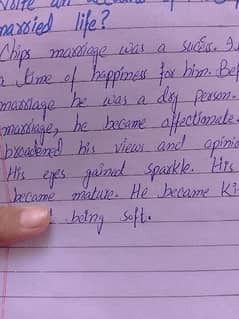 Write an account of
married life?
Chips marriage was a sucess. I
a time of happiness for him. Bef
marriage he was a dry person.
marriage, he became affectionate.
broadened his views and opinio
His eyes gained sparkle. His
became mature. He became ki
being soft.